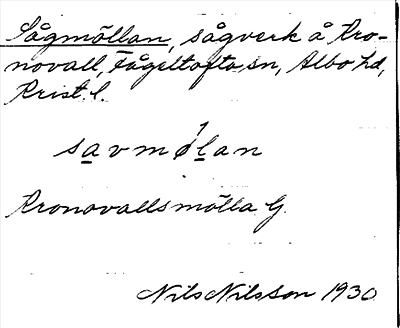 Sågmöllan, sågverk å Kro-
novall, Fågeltofta sn, Albo hd,
Krist. l.
savmø̀lan
Kronovallsmölla G.
Nils Nilsson 1930